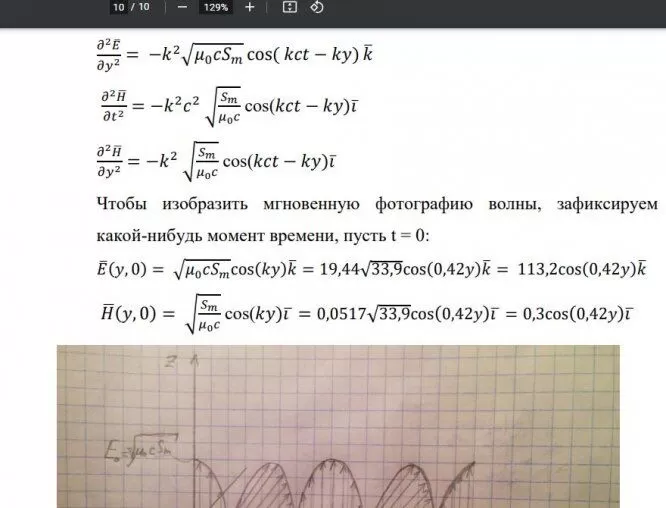 10 / 10 − 129% +
∂²Ē/∂y² = −k²√(μ₀cSₘ) cos( kct − ky) k̄
∂²H̄/∂t² = −k²c² √(Sₘ/μ₀c) cos(kct − ky)ī
∂²H̄/∂y² = −k² √(Sₘ/μ₀c) cos(kct − ky)ī
Чтобы изобразить мгновенную фотографию волны, зафиксируем
какой-нибудь момент времени, пусть t = 0:
Ē(y, 0) = √(μ₀cSₘ)cos(ky)k̄ = 19,44√33,9cos(0,42y)k̄ = 113,2cos(0,42y)k̄
H̄(y, 0) = √(Sₘ/μ₀c) cos(ky)ī = 0,0517√33,9cos(0,42y)ī = 0,3cos(0,42y)ī
Z
E₀=√μ₀cSₘ